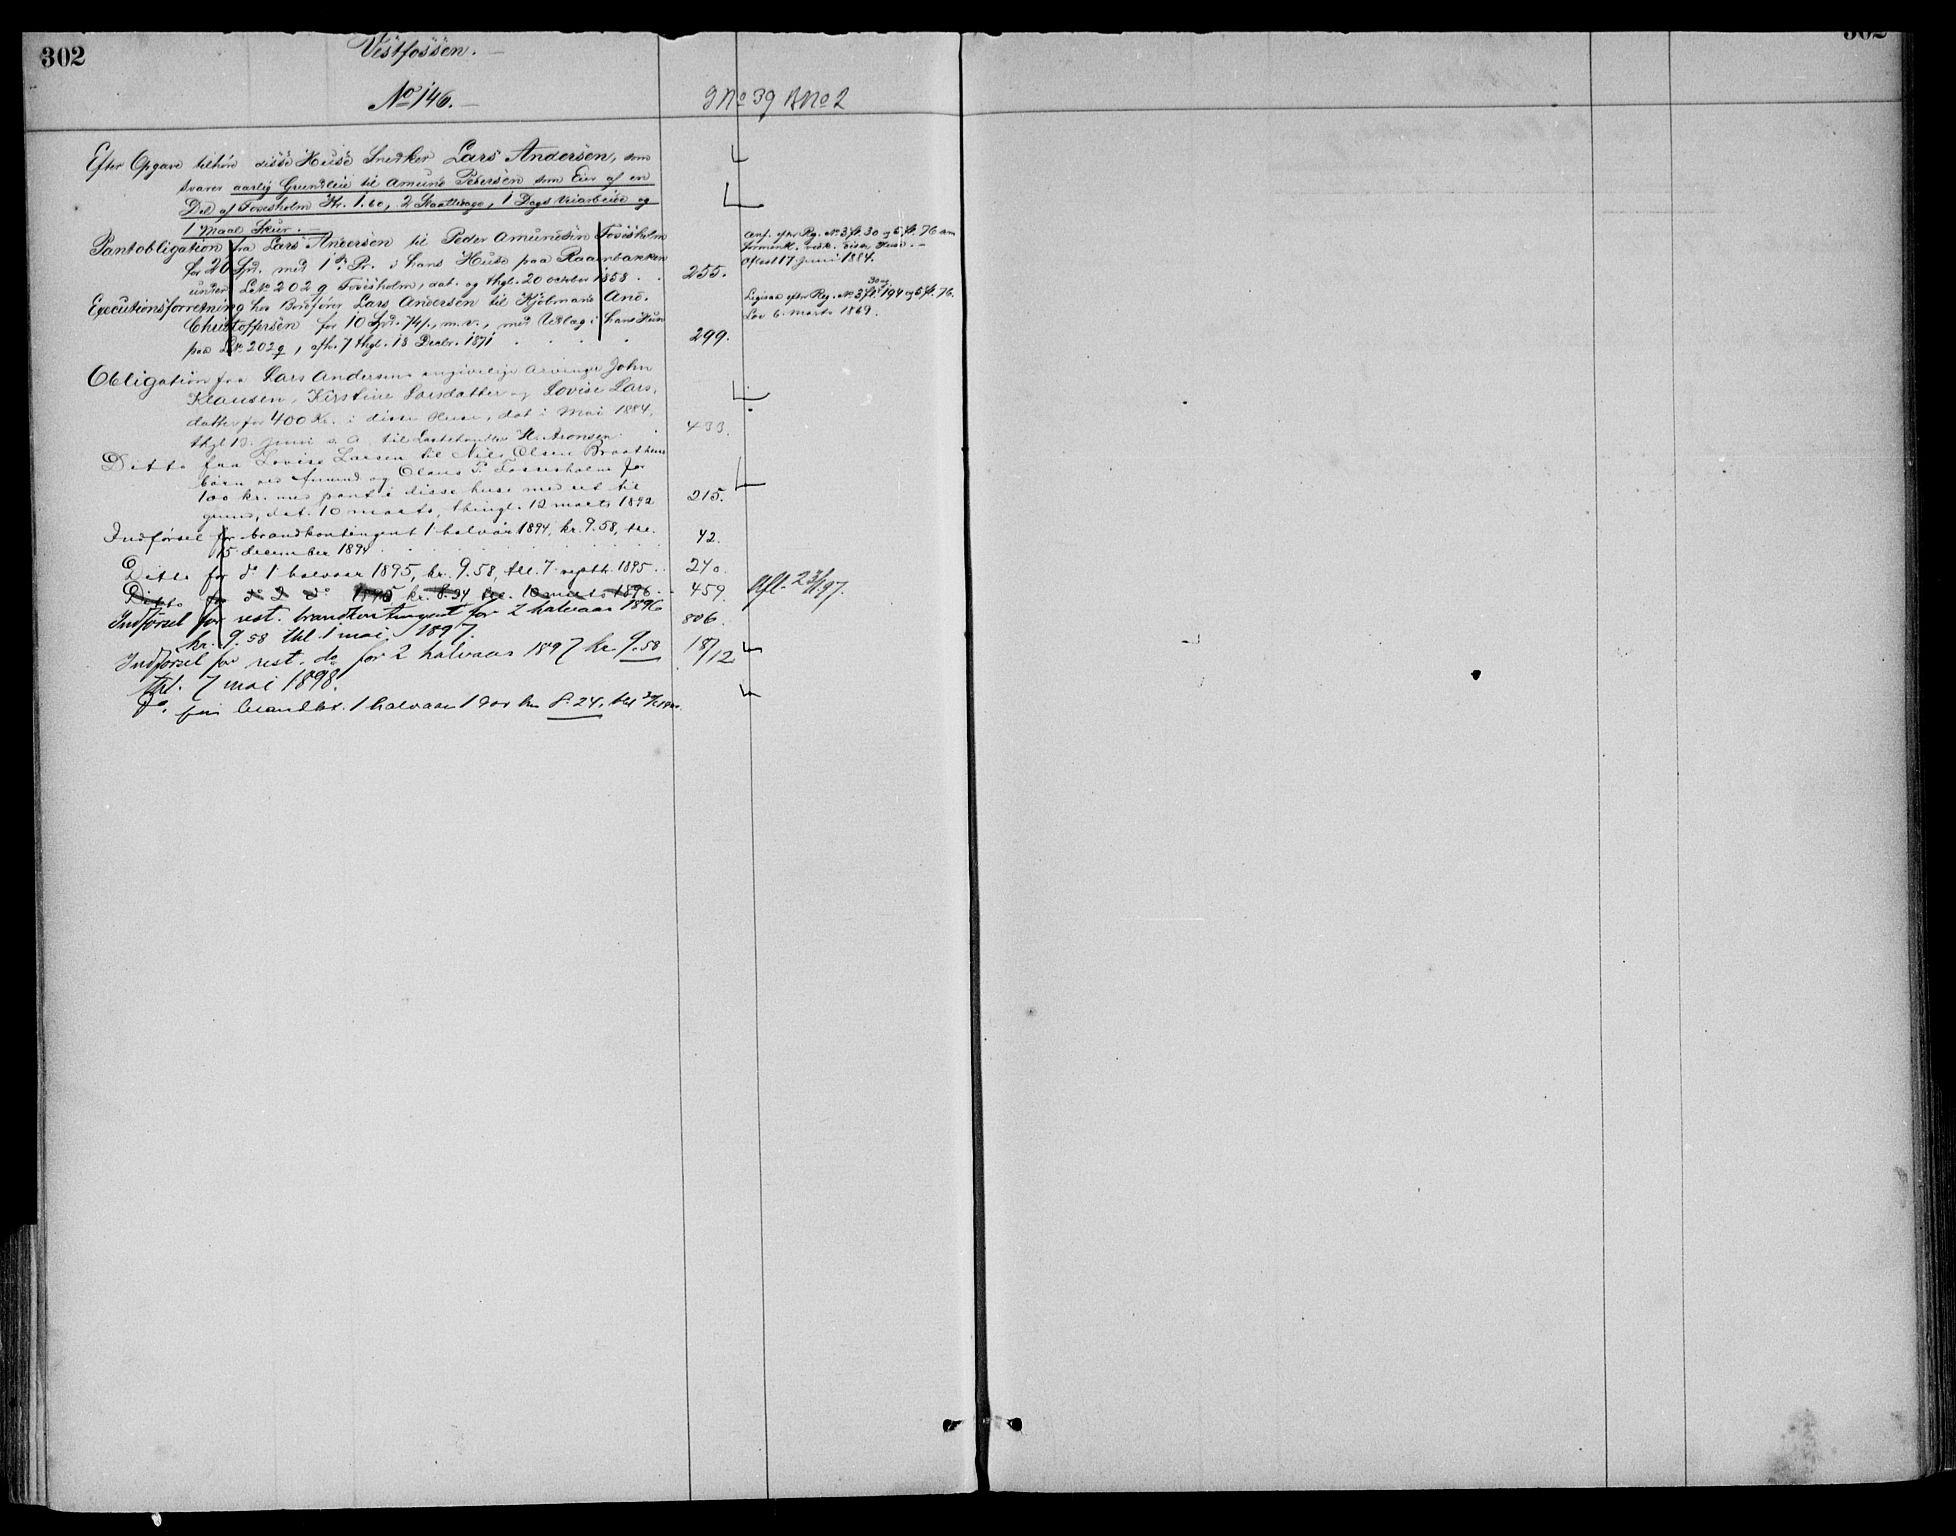 302
Vestfossen.
No 146.
G No 39 B No 2
Efter Opgave tilhøre disse Huse Snedker Lars Andersen, som
svarer aarlig Grundleie til Amund Pedersen som Eier af en
Del af Fossesholm Kr. 1.60, 2 Skaattdage, 1 Dags Veiarbeide og
1 Maal Skur.
Pantobligation fra Lars Andersen til Peder Amundsen Fossesholm
for 20 Spd. med 1ste Pr. i hans Huse paa Raaenbakken
under L.No 202 g Fossesholm, dat. og thgl. 20 october 1858
255.
Anf. efter Reg. No 3 fl. 30 og 5 fl. 76 am
formentl. vedk. disse Huse. -
Aflest 17 Juni 1884.
Executionsforretning hos Bordfører Lars Andersen til Kjøbmand And.
Christoffersen for 10 Spd. 74 s., m.v., med Udlæg i hans Huse
paa L.No 202 g, afh. 7 thgl. 18 Decbr. 1871
299.
30 og
Ligesaa efter Reg. No 3 fl. 194 og 5 fl. 76.
Lov 6. marts 1869.
Obligation fra Lars Andersens angivelige Arvinger John
Klausen, Kirstine Larsdatter og Lovise Lars-
datter for 400 Kr. i disse Huse, dat i Mai 1884,
thgl 13 Juni s. A. til H. Aronsen
433.
Ditto fra Lovise Larsen til Nils Olsen Braathens
børn ved Amund og Olaus P. Fossesholm for
100 kr. med pant i disse huse med ret til
grund, dat. 10 marts, thingl. 12 marts 1892
215.
Indførsel for brandkontingent 1 halvår 1894, kr. 9.58, thl.
15 december 1894
42.
Ditto for do 1 halvaar 1895, kr. 9.58, thl. 7 septb. 1895
240.
Ditto for do 2 do 1895 kr. 8.34 thl. 10 marts 1896
459.
Afl. 23/ 97.
Indførsel for rest. brandkontingent for 2 halvaar 1896
kr. 9.58 thl. 1 mai 1897.
806.
Indførsel for rest. do for 2 halvaar 1897 kr. 9.58
thl. 7 mai 1898.
18/12
do. for brandkt. 1 halvaar 1900 kr 8.24, thl
302